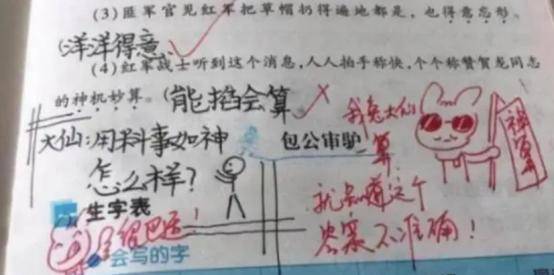 (3)匪军官见红军把草帽扔得遍地都是，也得意忘形。
(洋洋得意)
(4)红军战士听到这个消息，人人拍手称快，个个称赞贺龙同志
的神机妙算。(能掐会算)
大仙:用料事如神
怎么样?
包公审驴
我兔大仙
一算
就知道这个
答案不准确!
神算
生字表
会写的字